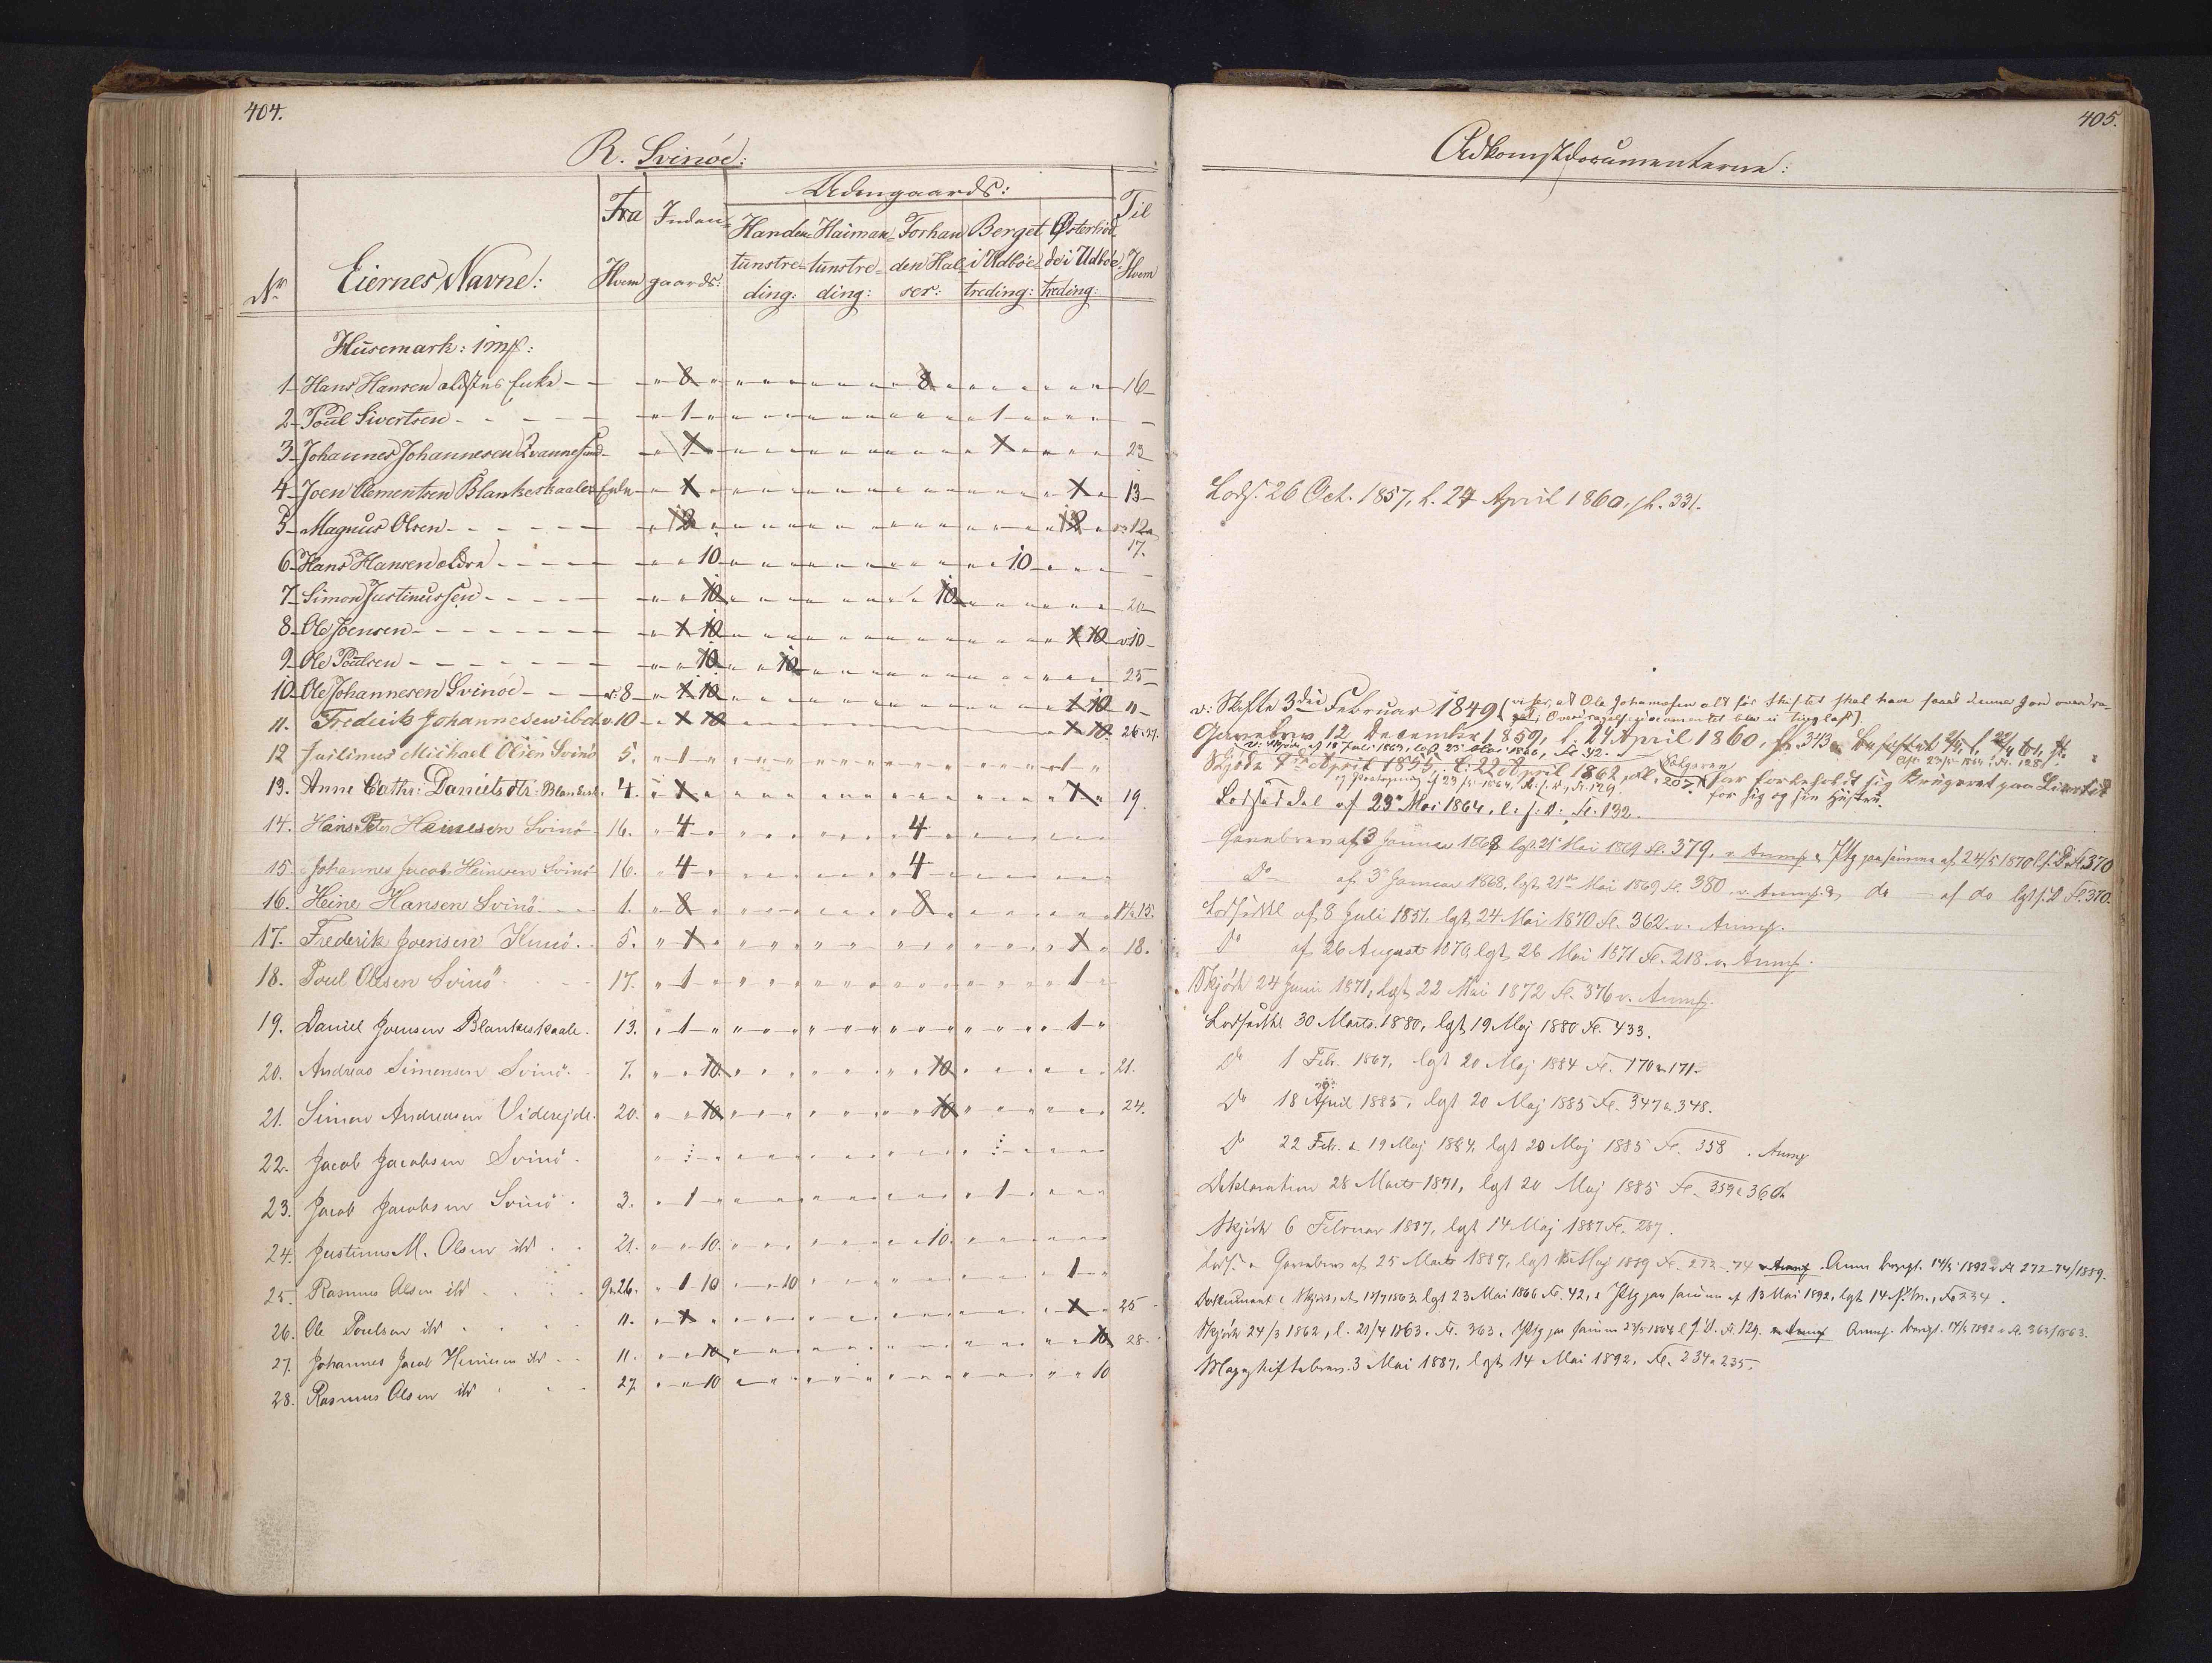 404.
R. Svinöe:
Nr
Eiernes Navne:
Fra Hvem
Indengaards:
Udengaards:
Handentunstreding:
Haimantunstreding:
Forhanden Halser:
Berget i Udböetreding:
Østerböe de i Udböetreding:
Til Hvem
Husemark: 1 mk:
1 Hans Hansen ældstes Enke 8 8 16
2 Poul Sivertsen 1 1
3 Johannes Johannesen Qvannesund 1 1 23
4 Joen Clementsen Blankeskaales Enke 1 1 13
5 Magnus Olsen 12 12 12 17.
6 Hans Hansen ældre 10 10
7 Simon Justinussen 10 10 20
8 Ole Joensen 1 10 1 10 10
9 Ole Poulsen 10 10 25
10 Ole Johannesen Svinöe 8 1 10 1 10 11
11. Frederik Johannesen ibd. 10 1 10 1 10 26.27.
12 Justinus Michael Olsen Svinö 5. 1 1
13. Anne Cathr: Daniels dtr: Blankesk. 4. 1 1 19.
14. Hans Peter Heinesen Svinö 16. 4 4
15. Johannes Jacob Heinesen Svinö 16. 4 4
16. Heine Hansen Svinö 1. 8 8 14 & 15.
17. Frederik Joensen Kunö. 5. 1 1 18.
18. Poul Olesen Svinö 17. 1 1
19. Daniel Joensen Blankeskaale. 13. 1 1
20. Andreas Simonsen Svinö. 7. 10 10 21.
21. Simon Andreasen Viderejde. 20. 10 10 24.
22. Jacob Jacobsen Svinö.
23. Jacob Jacobsen Svinö. 3. 1 1
24. Justinus M. Olsen ibd 21. 10. 10.
25. Rasmus Olsen ibd 9 & 26. 1 10 10 1
26. Ole Poulsen ibd 11. 1 1 25
27. Johannes Jacob Heinesen ibd 11. 10 10 28.
28. Rasmus Olsen ibd 27. 10 10
405.
Adkomstdocumenterne:
Lods. 26 Oct. 1857, l. 24 April 1860, fl. 331.
v: Skifte 3die Februar 1849 (viser, at Ole Johannesen alt för Skiftet skal have faaet denne Jord overdra-
get; Overdragelsesdocumentet blev ei tinglæst).
Gavebrev 12 December 1859, l. 24 April 1860, fl. 343
Skjöde af 18 Juli 1863, læst 23 Mai 1866, fl. 42.
Skjöde 7 April 1855. l: 22 April 1862, fl. 207. Sælgeren har forbeholdt sig Brugsret paa Livstid
for sig og sin Hustru.
og Paategning af 23/5 1864, l. s. D., fl. 129.
Lodseddel af 23de Mai 1864, l. s: D: fl. 132.
Gavebrev af 3 Januar 1868 lgt 21 Mai 1869 fl. 379, v. Anmk & Pktg paa samme af 24/5 1870 l. s. D. fl. 370
Do af 3 Januar 1868, lgt 21de Mai 1869 fl. 380 v. Anmk. & do af do lgt s. D fl. 370.
Lodseddel af 8 Juli 1857, lgt 24 Mai 1870 fl. 362 v. Anmk.
Do af 26 August 1870, lgt 26 Mai 1871 fl. 218 v. Anmk.
Skjöde 24 Juni 1871, lgt 22 Mai 1872 fl. 376 v. Anmk.
Lodseddel 30 Marts 1880, lgt 19 Maj 1880 fl. 433.
Do 1 Feb. 1867, lgt 20 Maj 1884 fl. 170 & 171.
Do 18 April 1885, lgt 20 Maj 1885 fl. 347 & 348.
Do 22 Feb. & 19 Maj 1884, lgt 20 Maj 1885 fl. 358. Anmk
Deklaration 28 Marts 1871, lgt 20 Maj 1885 fl. 359 & 360
Skjöde 6 Februar 1887, lgt 14 Maj 1887 fl. 287.
Lods. & Gavebrev af 25 Marts 1887, lgt Maj 1889 fl. 272-74 Anm. 14/5 1892 fl. 272-74/1889.
Dokument: Skjöde, af 18/7 1863. lgt 23 Mai 1866 fl. 42, & Pktg paa samme af 13 Mai 1892, lgt 14 s. M., fl. 234.
Skjöde 24/3 1862, l. 21/4 1863. fl. 363. Pktg paa samme 23/5 1864 l. s. D. fl. 129. Anmk. 14/5 1892 fl. 363/1863.
Mageskiftebrev. 3 Mai 1887, lgt 14 Mai 1892. fl. 234 & 235.